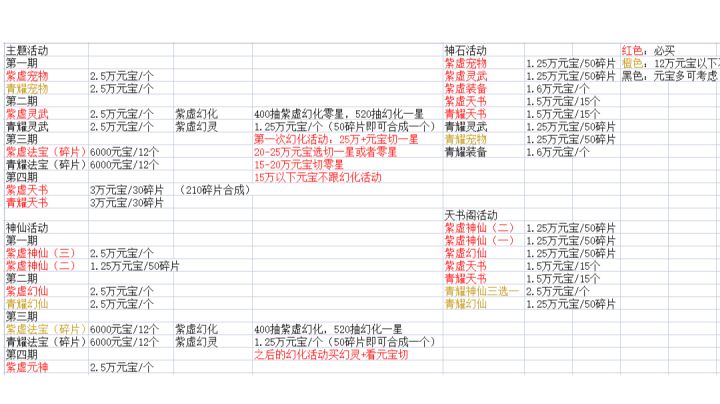 主题活动
第一期
紫虚宠物 2.5万元宝/个
青耀宠物 2.5万元宝/个
第二期
紫虚灵武 2.5万元宝/个 紫虚幻化 400抽紫虚幻化零星，520抽幻化一星
青耀灵武 2.5万元宝/个 紫虚幻灵 1.25万元宝/个（50碎片即可合成一个）
第三期 第一次幻化活动：25万+元宝切一星
紫虚法宝（碎片） 6000元宝/12个 20-25万元宝选切一星或者零星
青耀法宝（碎片） 6000元宝/12个 15-20万元宝切零星
第四期 15万以下元宝不跟幻化活动
紫虚天书 3万元宝/30碎片 （210碎片合成）
青耀天书 3万元宝/30碎片
神石活动
紫虚宠物 1.25万元宝/50碎片
紫虚灵武 1.25万元宝/50碎片
紫虚装备 1.6万元宝/个
紫虚天书 1.5万元宝/15个
青耀天书 1.5万元宝/15个
青耀灵武 1.25万元宝/50碎片
青耀宠物 1.25万元宝/50碎片
青耀装备 1.6万元宝/个
红色：必买
橙色：12万元宝以下
黑色：元宝多可考虑
神仙活动
第一期
紫虚神仙（三） 2.5万元宝/个
紫虚神仙（二） 1.25万元宝/50碎片
第二期
紫虚幻仙 2.5万元宝/个
青耀幻仙 2.5万元宝/个
第三期
紫虚法宝（碎片） 6000元宝/12个 紫虚幻化 400抽紫虚幻化，520抽幻化一星
青耀法宝（碎片） 6000元宝/12个 紫虚幻灵 1.25万元宝/个（50碎片即可合成一个）
第四期 之后的幻化活动买幻灵+看元宝切
紫虚元神 2.5万元宝/个
天书阁活动
紫虚神仙（二） 1.25万元宝/50碎片
紫虚神仙（一） 1.25万元宝/50碎片
紫虚幻仙 1.25万元宝/50碎片
紫虚天书 1.5万元宝/15个
青耀天书 1.5万元宝/15个
青耀神仙三选一 2.5万元宝/个
青耀幻仙 1.25万元宝/50碎片